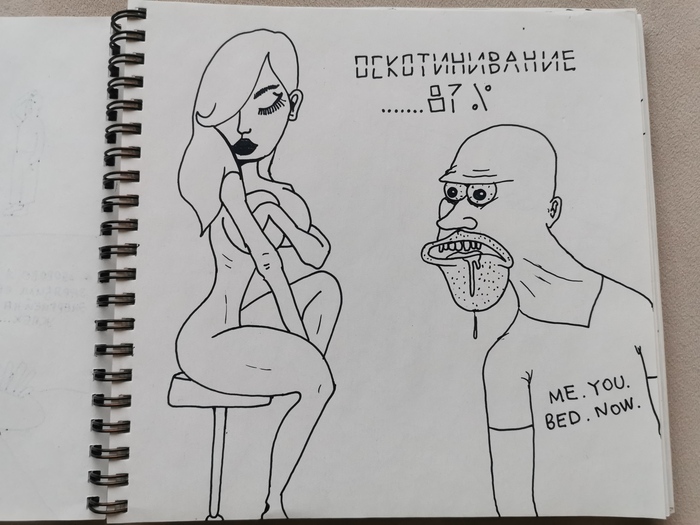 ОСКОТИНИВАНИЕ
.......87%
ME. YOU.
BED. NOW.